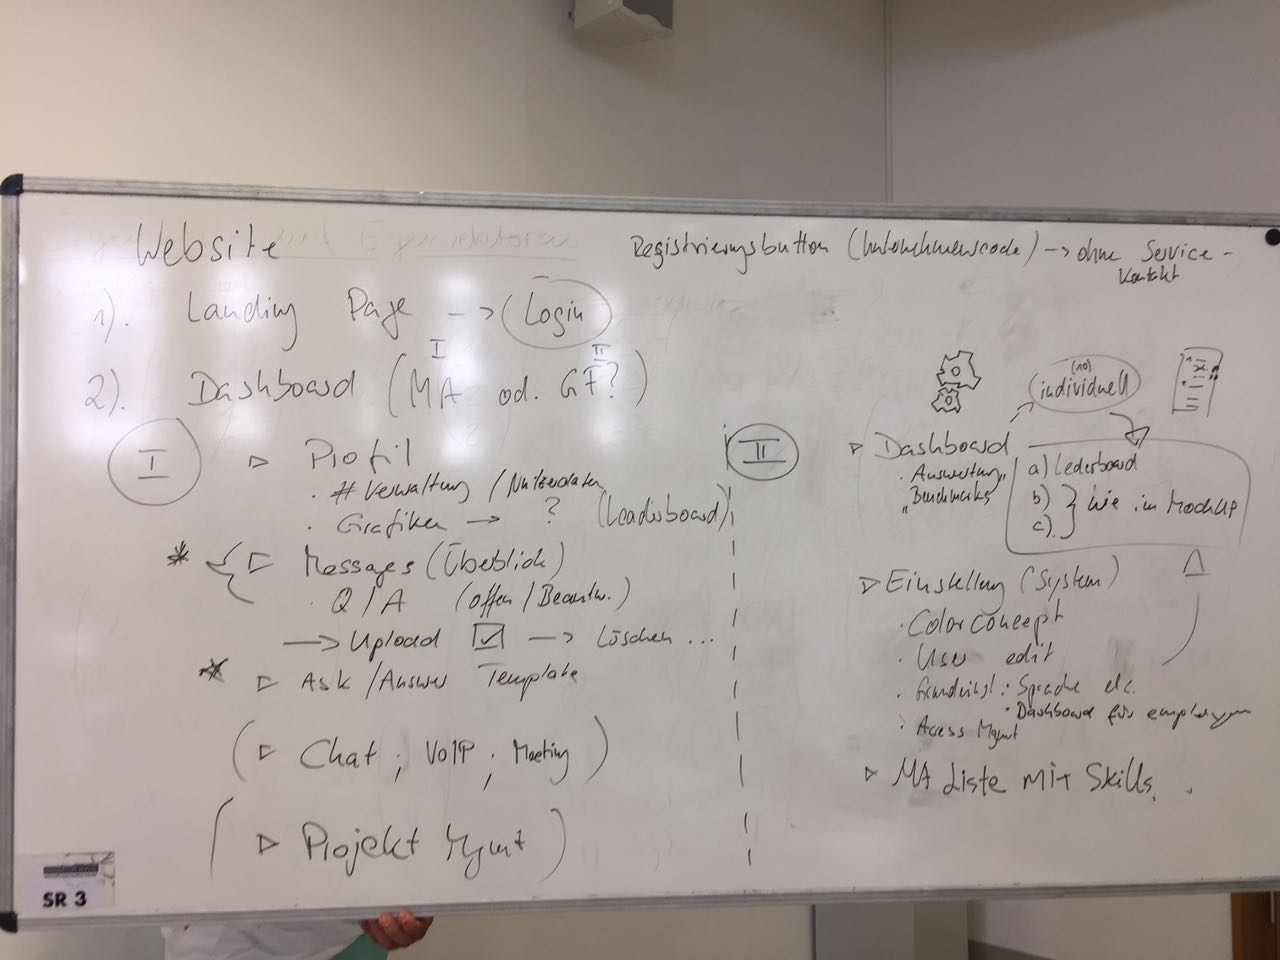 Website
Registrierungsbutton (Unternehmenscode) -> ohne Service-
Kontakt
1). Landing Page -> Login
I II
2). Dashboard (MA od. GF?)
I
▷ Profil
· # Verwaltung / Nutzerdaten
· Grafiken -> ? (Leaderboard)
* { ▷ Messages (Überblick)
· Q/A (offen / Beantw.)
-> Upload ☑ -> Löschen ...
* ▷ Ask / Answer Template
(▷ Chat ; VoIP ; Meeting)
(▷ Projekt Mgmt)
II
(10)
individuell
▷ Dashboard
· Auswertung
"Benchmarks"
a) Lederboard
b)
c). } Wie im MockUp
▷ Einstellung (System)
· Color Concept
· User edit
· Grundeinst.: Sprache etc.
· Dashboard für
· Acess Mgmt
▷ MA Liste mit Skills
SR 3